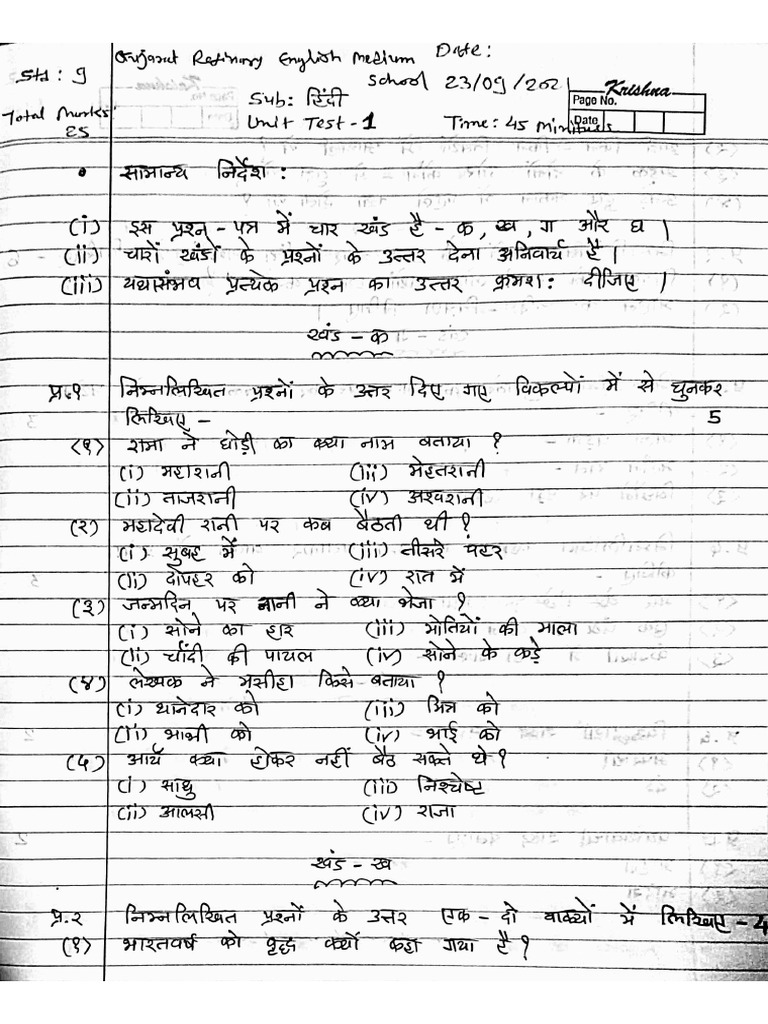 Gujarat Refinary English Medium Date:
Std : 9 School 23/09/202
Sub: हिंदी Krishna
Page No.
Total Marks Unit Test-1 Time: 45 Minitues Date
25
• सामान्य निर्देश :
(i) इस प्रश्न-पत्र में चार खंड है - क, ख, ग और घ ।
(ii) चारों खंडों के प्रश्नों के उत्तर देना अनिवार्य है ।
(iii) यथासंभव प्रत्येक प्रश्न का उत्तर क्रमश: दीजिए ।
खंड - क
प्र.१ निम्नलिखित प्रश्नों के उत्तर दिए गए विकल्पों में से चुनकर
लिखिए - 5
(१) रामा ने घोड़ी का क्या नाम बताया ?
(i) महारानी (iii) मेहतरानी
(ii) ताजरानी (iv) अश्वरानी
(२) महादेवी रानी पर कब बैठती थी ?
(i) सुबह में (iii) तीसरे पहर
(ii) दोपहर को (iv) रात में
(३) जन्मदिन पर नानी ने क्या भेजा ?
(i) सोने का हार (iii) मोतियों की माला
(ii) चाँदी की पायल (iv) सोने के कड़े
(४) लेखक ने मसीहा किसे बताया ?
(i) थानेदार को (iii) मित्र को
(ii) भाभी को (iv) भाई को
(५) आर्य क्या होकर नहीं बैठ सकते थे ?
(i) साधु (iii) निश्चेष्ट
(ii) आलसी (iv) राजा
खंड - ख
प्र.२ निम्नलिखित प्रश्नों के उत्तर एक-दो वाक्यों में लिखिए - 4
(१) भारतवर्ष को वृद्ध क्यों कहा गया है ?